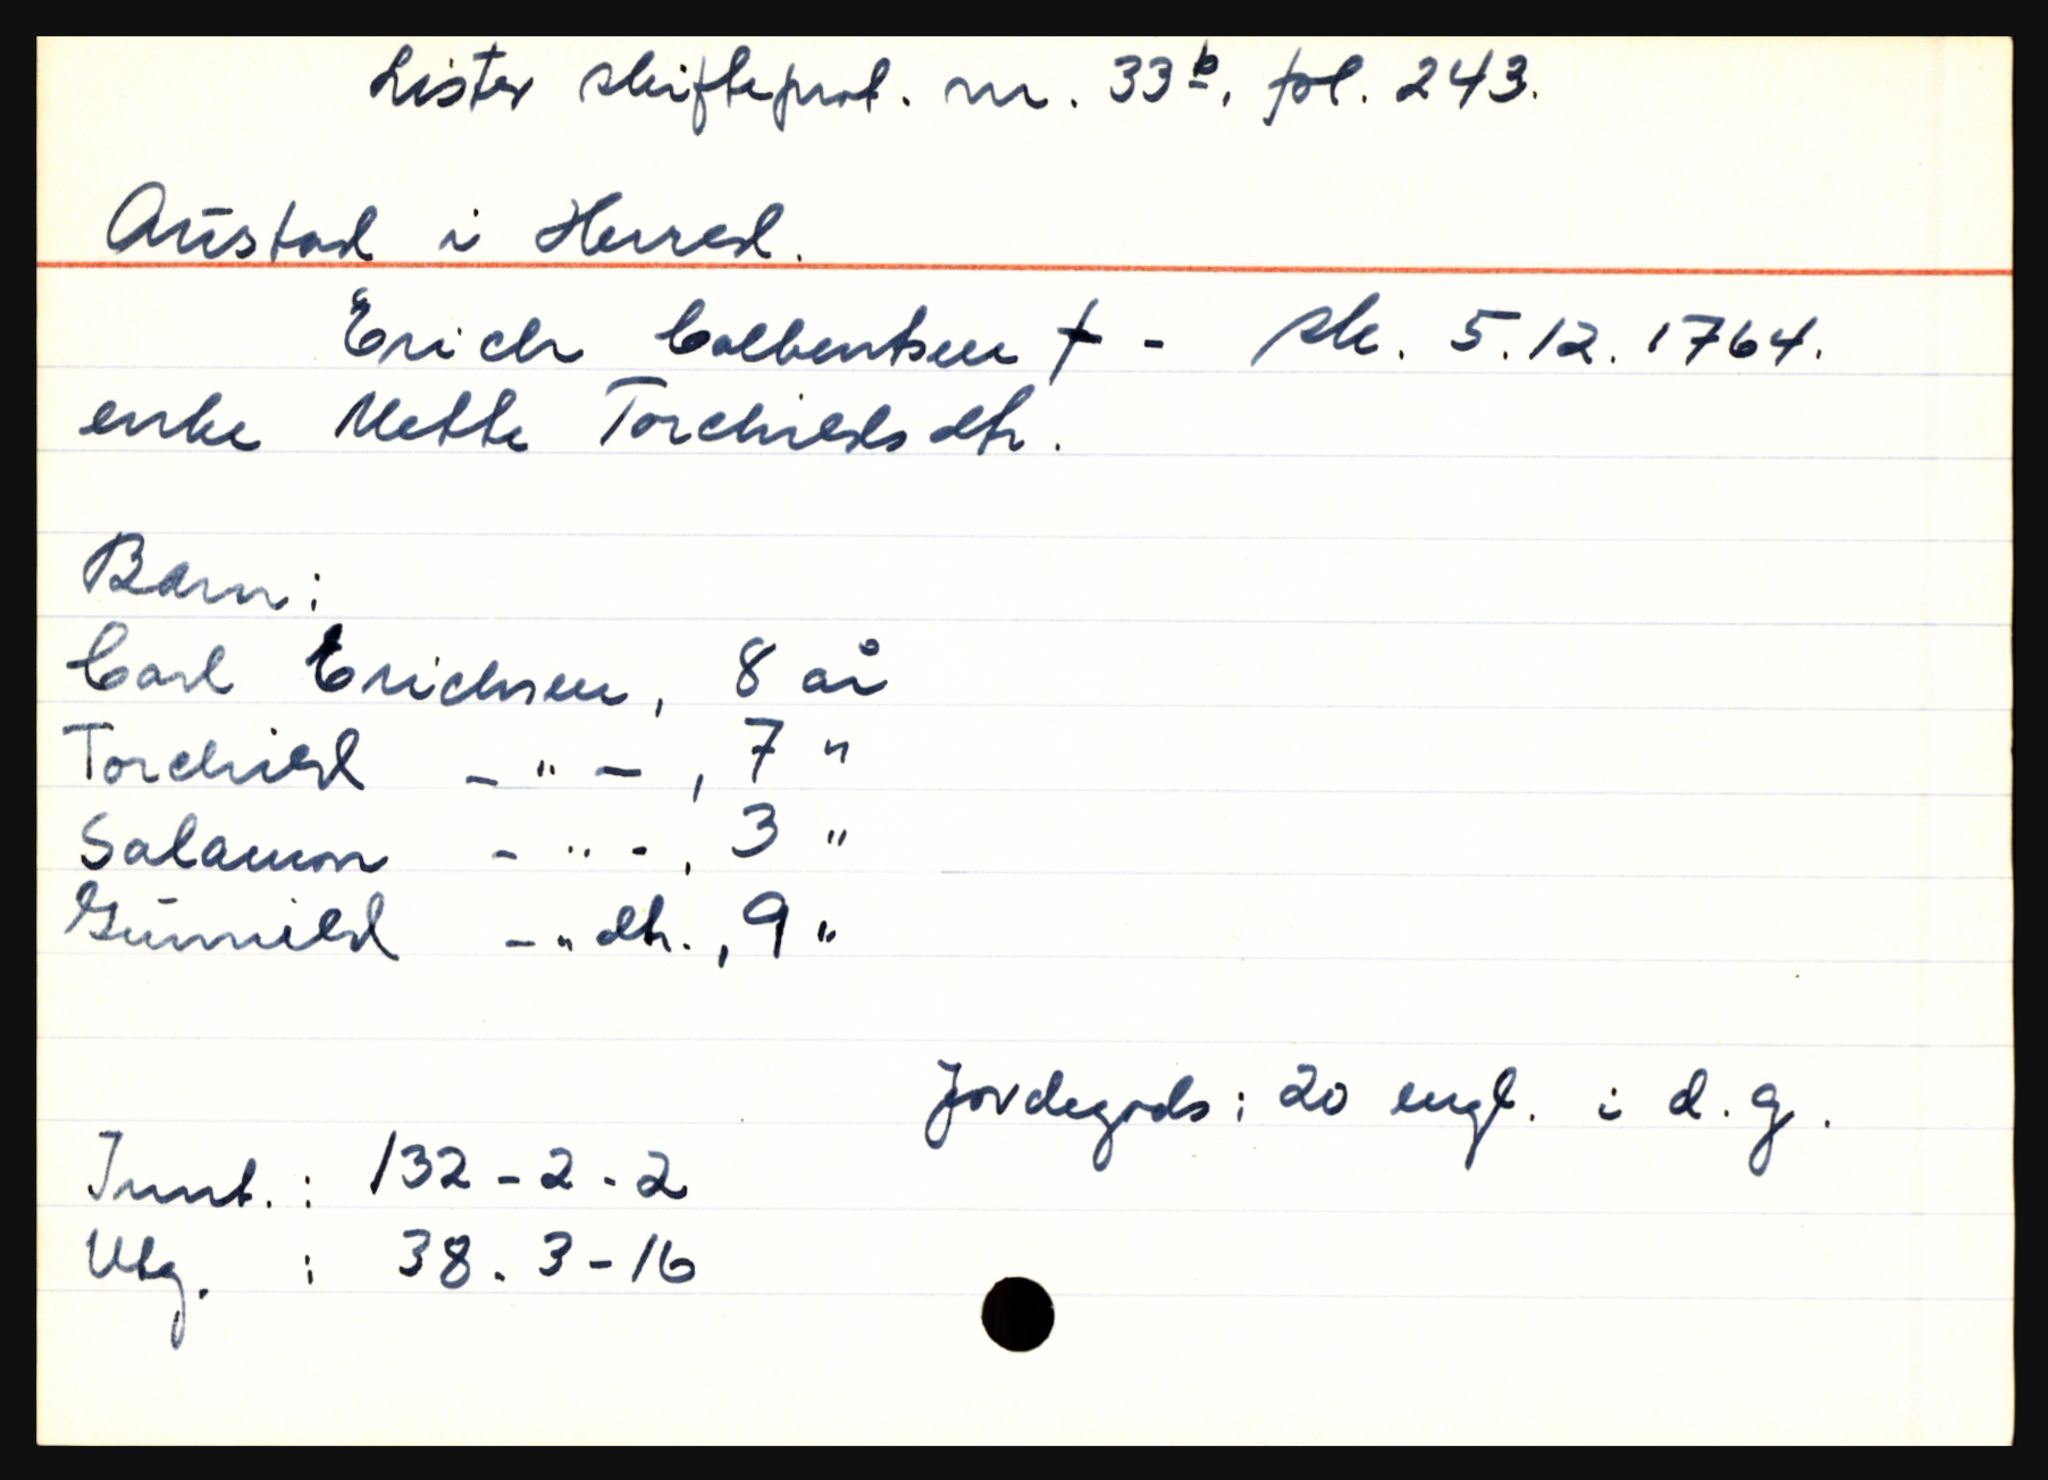 Lister skifteprot. nr. 33b, fol. 243.
Austad i Herred.
Erich Colbentsen † - sk. 5.12.1764.
enke Mette Torchildsdtr.
Barn:
Carl Erichsen, 8 år
Torchild - " - , 7 "
Salamon - " - , 3 "
Gunnild - " dtr. , 9 "
Jordegods: 20 engl. i d. g.
Innt. : 132 - 2 - 2
Utg. : 38 - 3 - 16